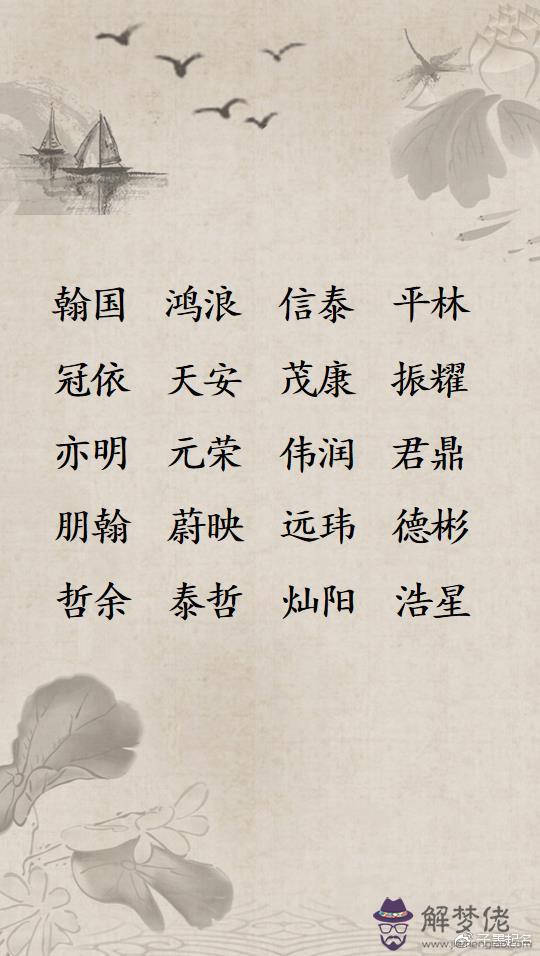 翰国 鸿浪 信泰 平林
冠依 天安 茂康 振耀
亦明 元荣 伟润 君鼎
朋翰 蔚映 远玮 德彬
哲余 泰哲 灿阳 浩星
解梦佬